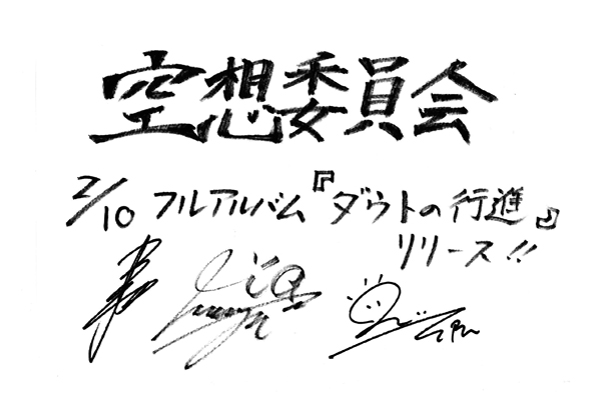 空想委員会
2/10 フルアルバム『ダウトの行進』
リリース!!